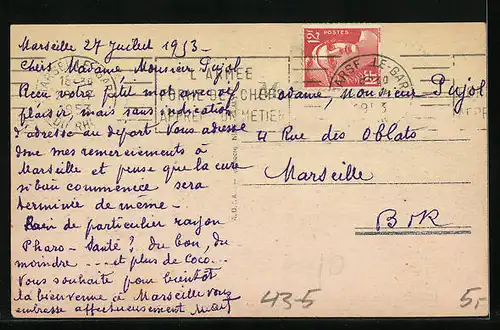 Marseille 27 Juillet 1953
Chers Madame Monsieur Pujol
Recu votre petit mot avec
plaisir mais sans indication
d'adresse au départ. Vous adresse
donc mes remerciements à
Marseille et pense que la cure
si bien commencée sera
terminée de même -
Rien de particulier rayon
Pharo - Santé ? du bon, du
moindre .... et plus de coco...
Vous souhaite pour bientôt
la bienvenue à Marseille vous
embrasse affectueusement
POSTES
L'ARMÉE
MARSEILLE-GARE
1953
Madame, Monsieur Pujol
4 Rue des Oblats
Marseille
B d R
43-5
5,-